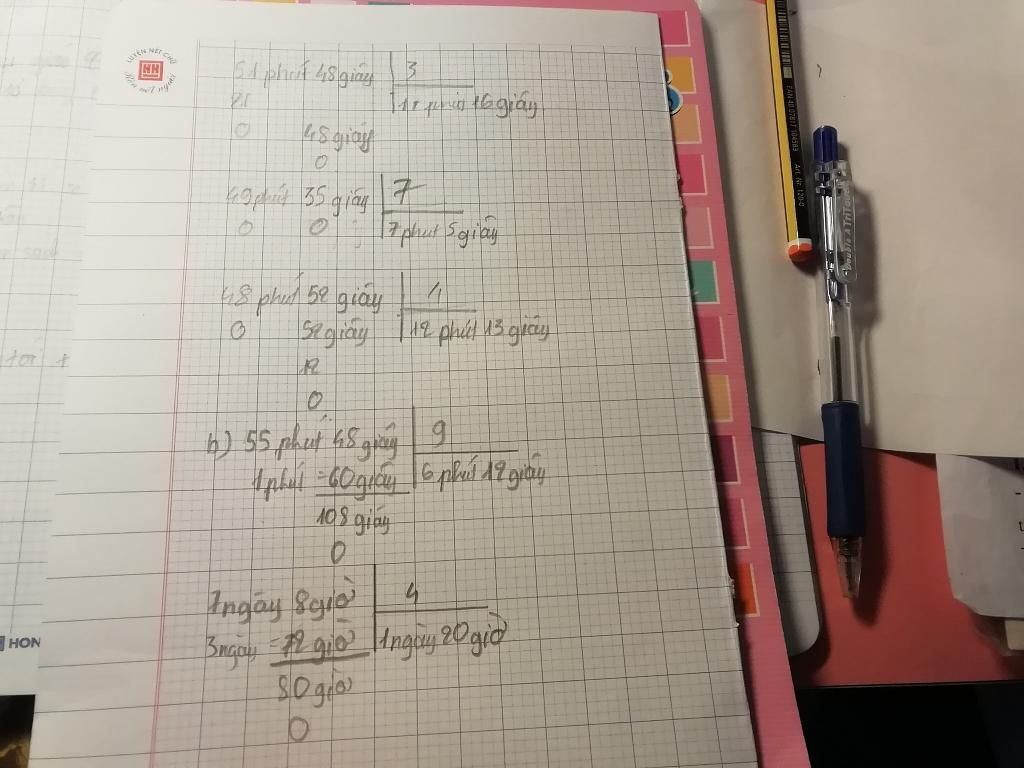 51 phút 48 giây 3
21 17 phút 16 giây
0 48 giây
0
49 phút 35 giây 7
0 0 7 phút 5 giây
48 phút 52 giây 4
0 52 giây 12 phút 13 giây
12
0
b) 55 phút 48 giây 9
1 phút = 60 giây 6 phút 12 giây
108 giây
0
7 ngày 8 giờ 4
3 ngày = 72 giờ 1 ngày 20 giờ
80 giờ
0
LUYỆN NÉT CHỮ
HH
HON
EAN 40 07817 104583
Art. Nr. 120-0
Double A TriTouch